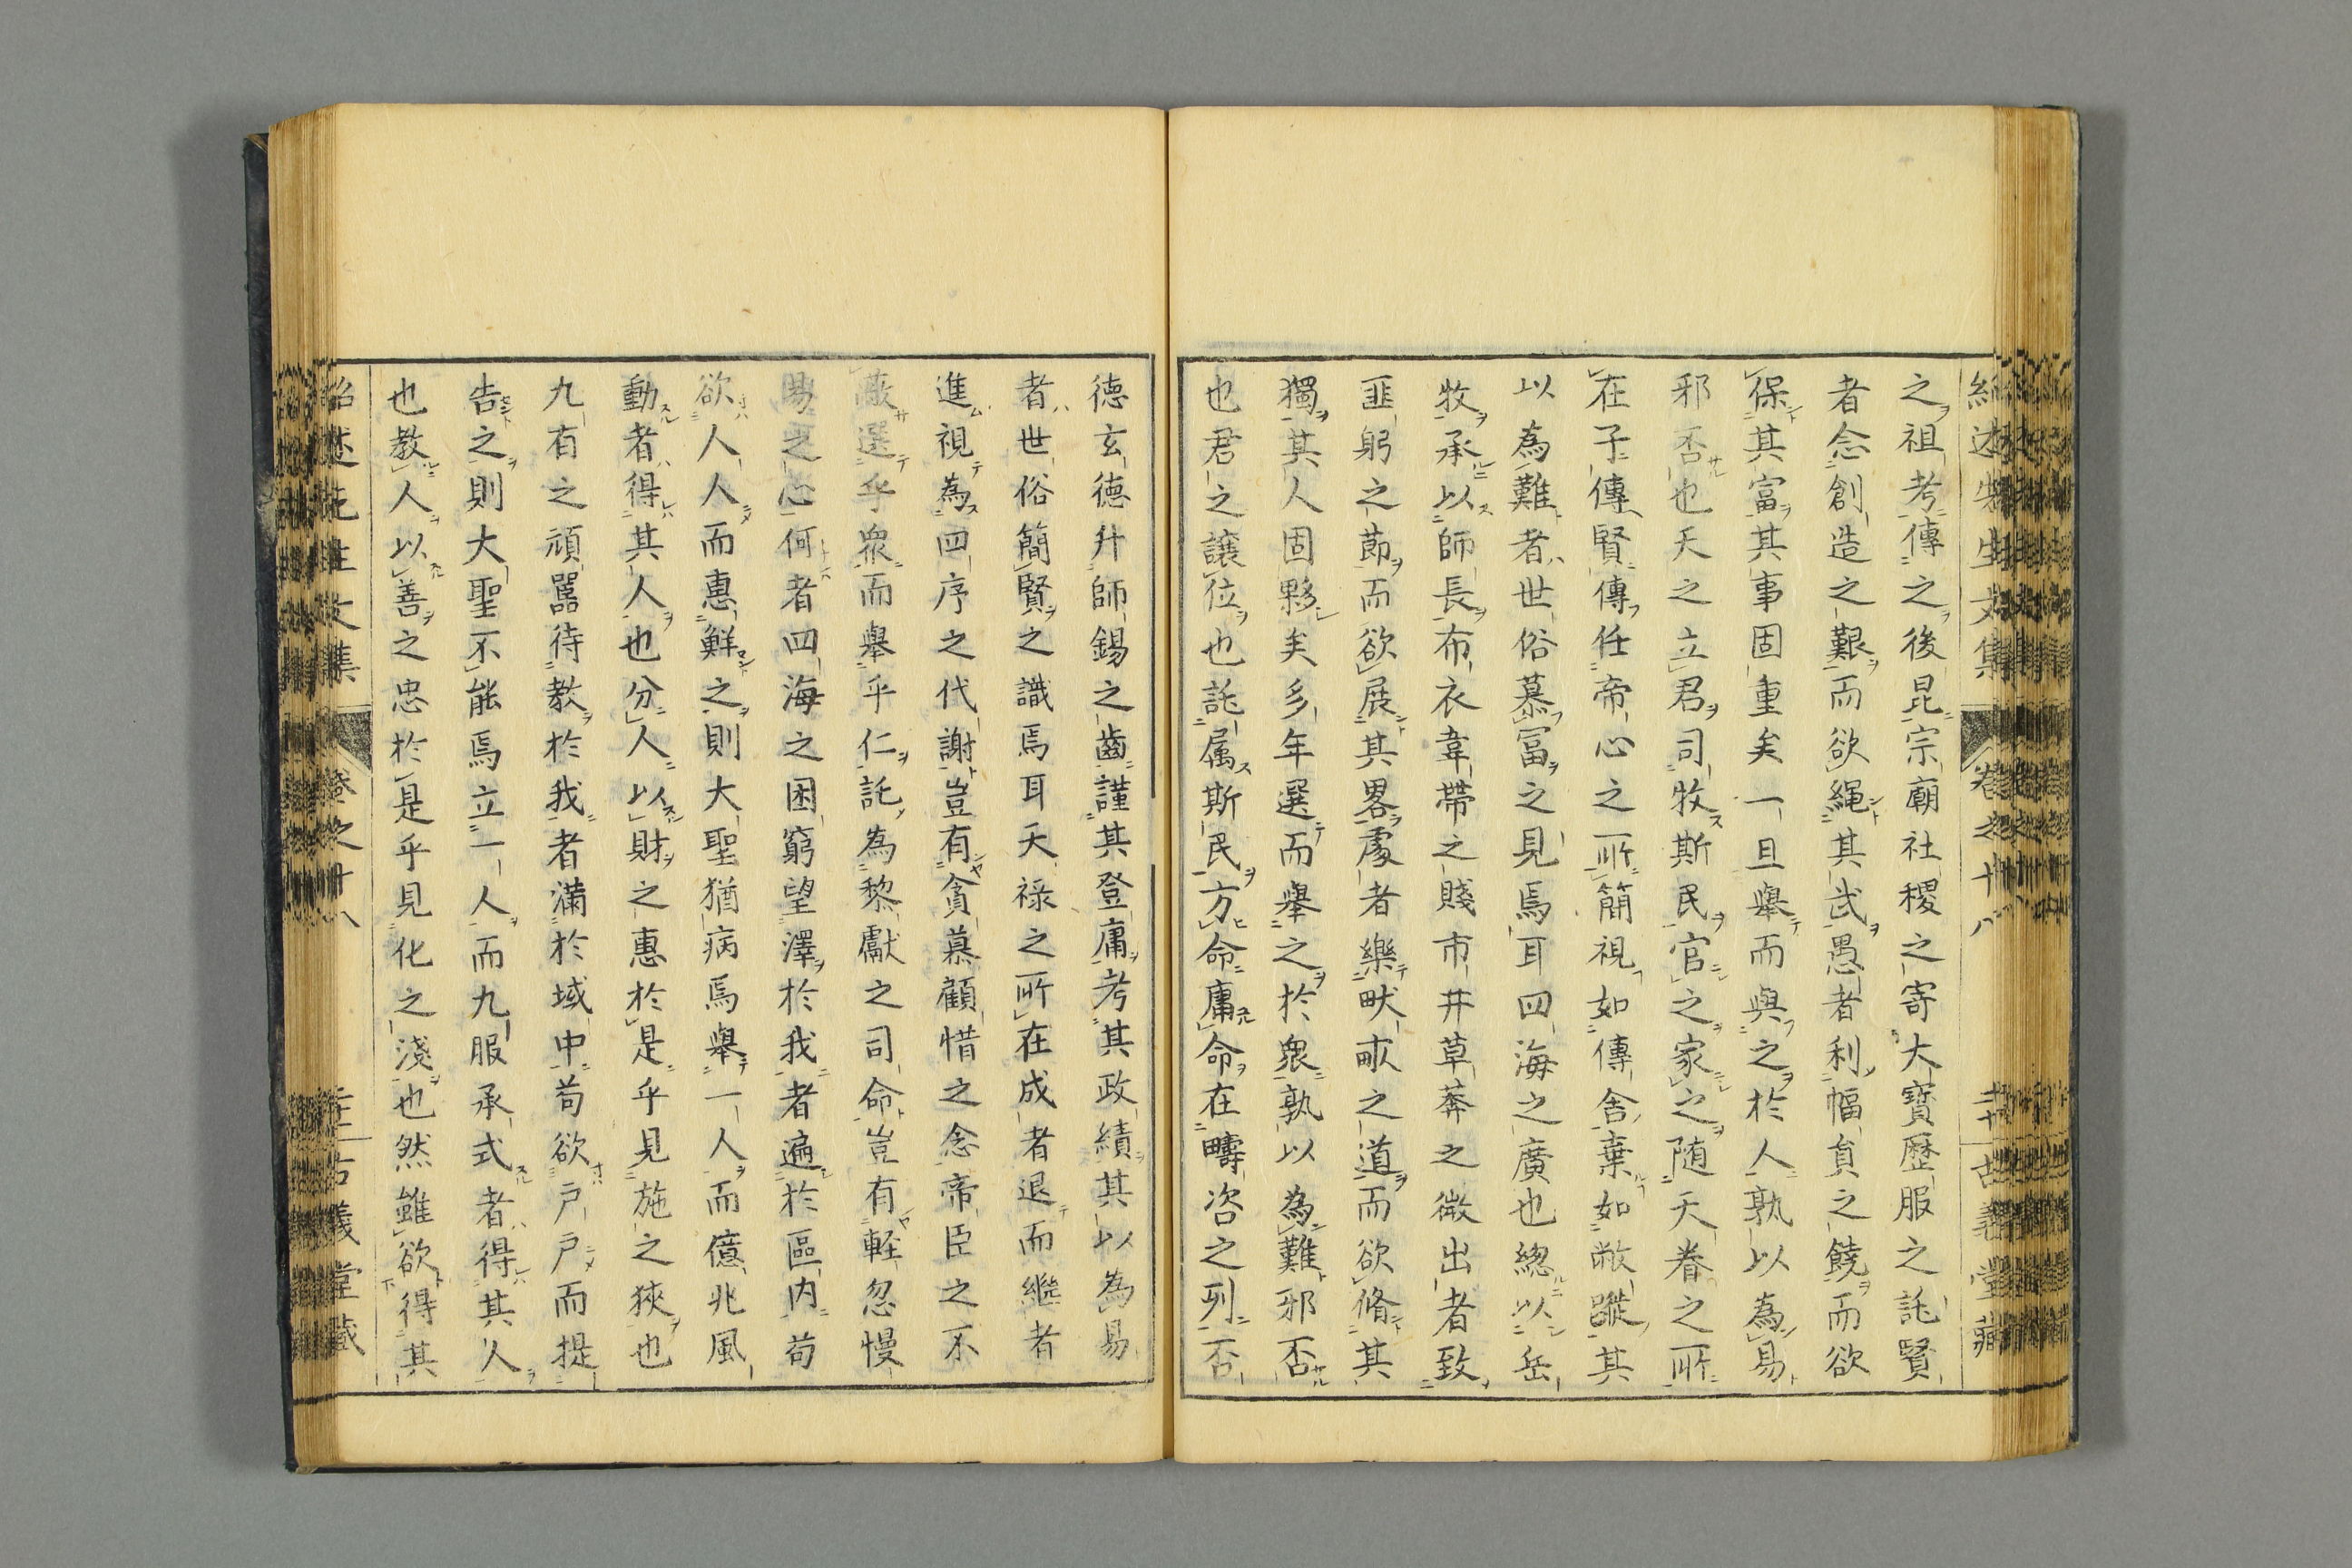 紹述先生文集 卷之十八 二十 古義堂藏
之祖考傳之後昆宗廟社稷之寄大寶歷服之託賢
者念創造之艱而欲繩其武愚者利幅員之饒而欲
保其富其事固重矣一旦舉而與之於人孰以為易
邪否也天之立君司牧斯民官之家之随天眷之所
在子傳賢傳任帝心之所簡視如傳舎棄如敝蹝其
以為難者世俗慕冨之見焉耳四海之廣也総以岳
牧承以師長布衣韋帶之賤市井草莽之微出者致
匪躬之莭而欲展其畧處者樂畎畝之道而欲脩其
獨其人固夥矣多年選而舉之於衆孰以為難邪否
也君之讓位也託属斯民方命庸命在疇咨之列否
德玄德升師錫之齒謹其登庸考其政績其以為易
者世俗簡賢之識焉耳天禄之所在成者退而繼者
進視為四序之代謝豈有貪慕顧惜之念帝臣之不
蔽選乎衆而舉乎仁託為黎獻之司命豈有軽忽慢
易之心何者四海之困窮望澤於我者遍於區内苟
欲人人而惠鮮之則大聖猶病焉舉一人而億兆風
動者得其人也分人以財之惠於是乎見施之狹也
九有之頑嚚待教於我者滿於域中苟欲户户而提
告之則大聖不能焉立一人而九服承式者得其人
也教人以善之忠於是乎見化之淺也然雖欲得其
紹述先生文集 卷之十八 古義堂藏